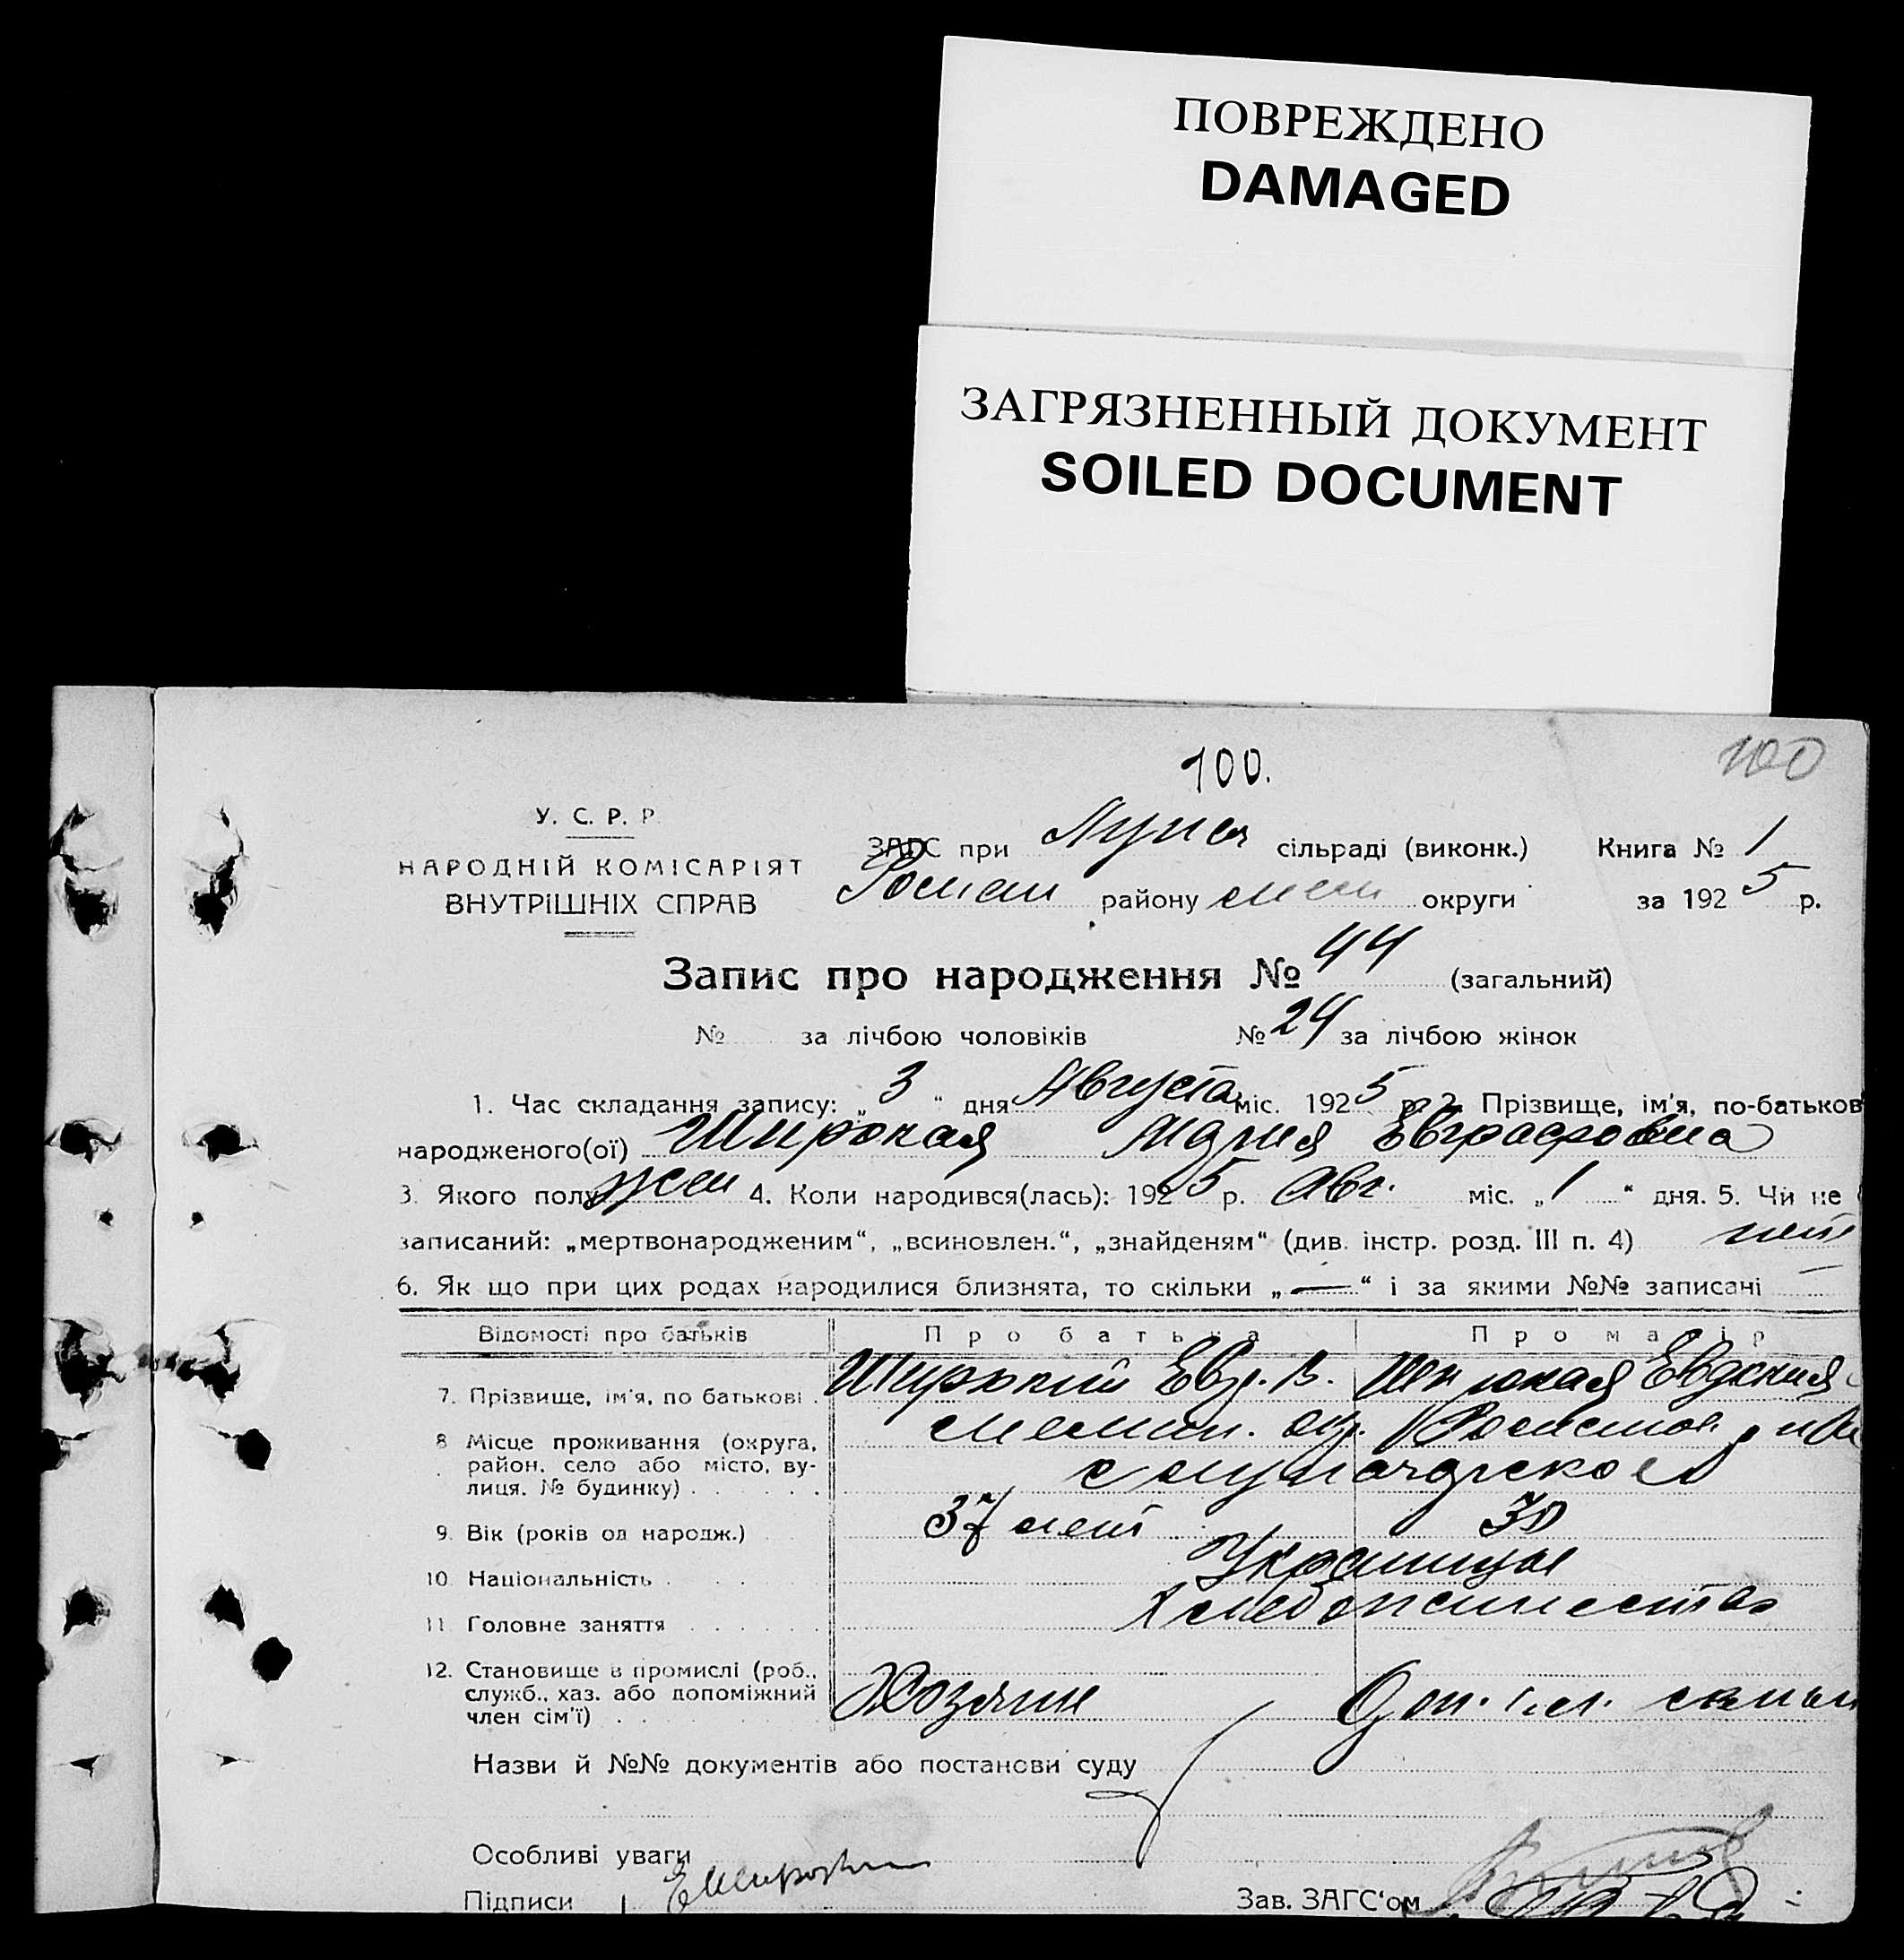 ПОВРЕЖДЕНО
DAMAGED
ЗАГРЯЗНЕННЫЙ ДОКУМЕНТ
SOILED DOCUMENT
100.
100
У. С. Р. Р.
НАРОДНІЙ КОМІСАРІЯТ
ВНУТРІШНІХ СПРАВ
ЗАГС при сільраді (виконк.) Книга № 1
Ромен району округи за 1925 р.
Запис про народження № 44 (загальний)
№ за лічбою чоловіків № 24 за лічбою жінок
1. Час складання запису: „3“ дня Августа міс. 1925 р. 2. Прізвище, ім'я, по-батьков
народженого(ої) Широкая Мария Евграфовна
3. Якого полу жен 4. Коли народився(лась): 1925 р. Авг. міс. „1“ дня. 5. Чи не
записаний: „мертвонародженим“, „всиновлен.“, „знайденям“ (див. інстр. розд. III п. 4) нет
6. Як що при цих родах народилися близнята, то скільки „—“ і за якими №№ записані —
Відомості про батьків Про батька Про матір
7. Прізвище, ім'я, по батькові . Широкий Евгр. В. Широкая Евдокия
8 Місце проживання (округа,
район, село або місто, ву-
лиця, № будинку) . . . . . .
9. Вік (років од народж.) 37 лет 30
10. Національність . . . . Украинцы
11 Головне заняття . . . . . . Хлебопашество
12. Становище в промислі (роб.,
служб., хаз. або допоміжний
член сім'ї) . . . . . Хозяин Доп. чл. семьи
Назви й №№ документів або постанови суду
Особливі уваги
Підписи Е Широкий
Зав. ЗАГС'ом